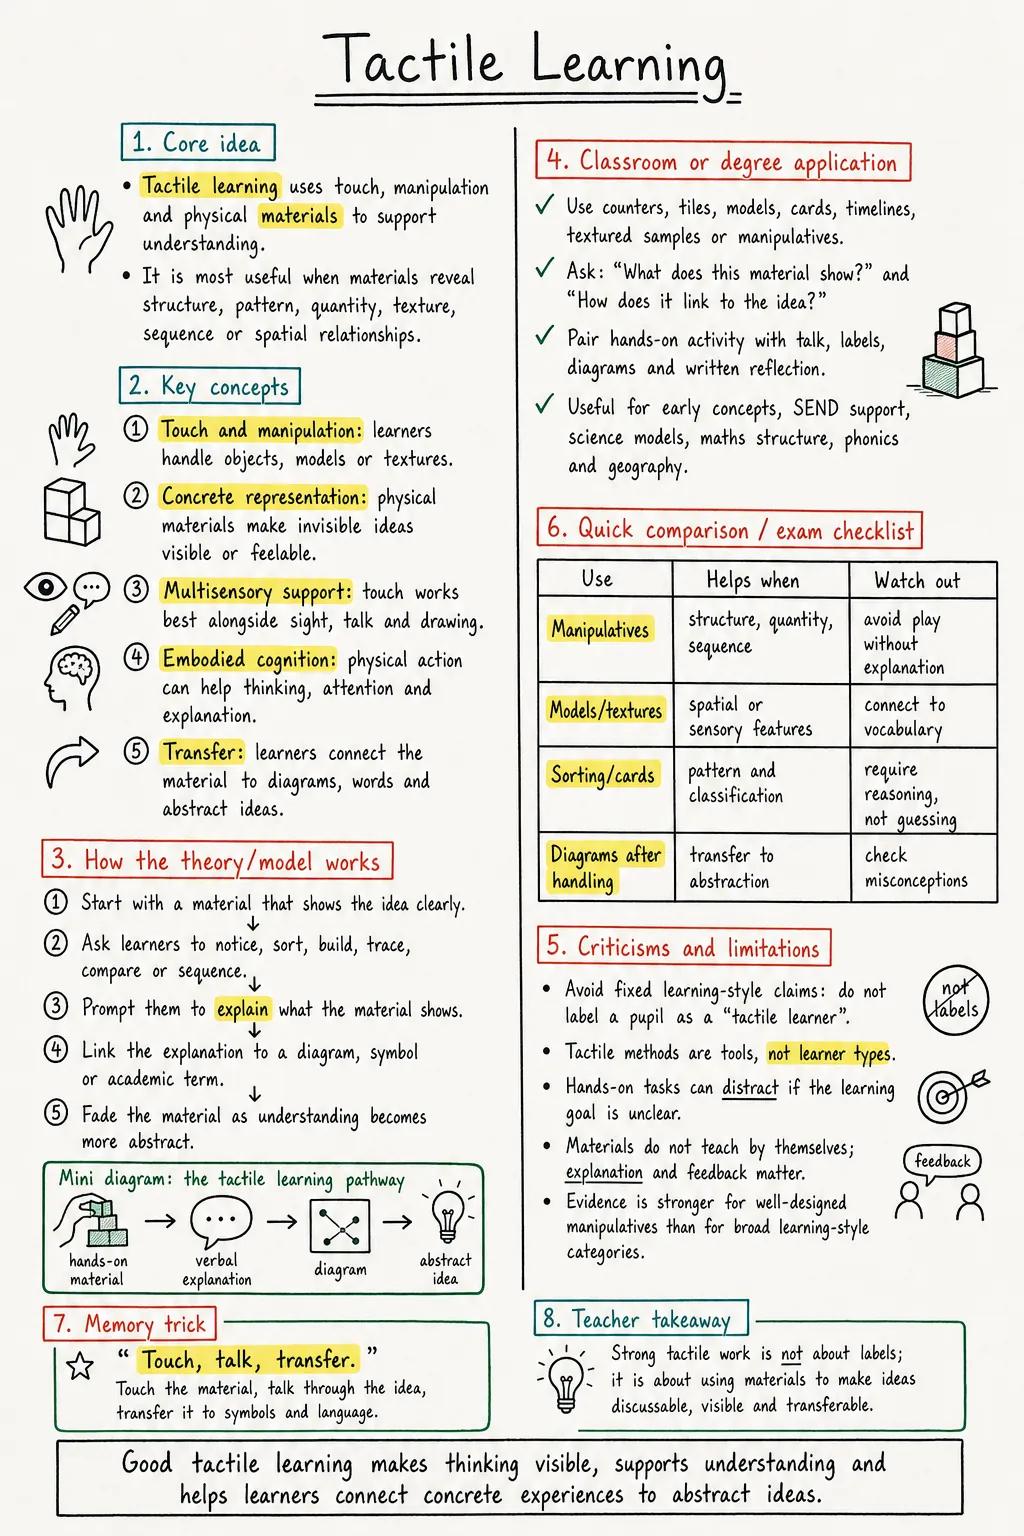 Tactile Learning
1. Core idea
• Tactile learning uses touch, manipulation
and physical materials to support
understanding.
• It is most useful when materials reveal
structure, pattern, quantity, texture,
sequence or spatial relationships.
2. Key concepts
① Touch and manipulation: learners
handle objects, models or textures.
② Concrete representation: physical
materials make invisible ideas
visible or feelable.
③ Multisensory support: touch works
best alongside sight, talk and drawing.
④ Embodied cognition: physical action
can help thinking, attention and
explanation.
⑤ Transfer: learners connect the
material to diagrams, words and
abstract ideas.
3. How the theory/model works
① Start with a material that shows the idea clearly.
② Ask learners to notice, sort, build, trace,
compare or sequence.
③ Prompt them to explain what the material shows.
④ Link the explanation to a diagram, symbol
or academic term.
⑤ Fade the material as understanding becomes
more abstract.
Mini diagram: the tactile learning pathway
hands-on
material
verbal
explanation
diagram
abstract
idea
4. Classroom or degree application
✓ Use counters, tiles, models, cards, timelines,
textured samples or manipulatives.
✓ Ask: "What does this material show?" and
"How does it link to the idea?"
✓ Pair hands-on activity with talk, labels,
diagrams and written reflection.
✓ Useful for early concepts, SEND support,
science models, maths structure, phonics
and geography.
6. Quick comparison / exam checklist
Use Helps when Watch out
Manipulatives
structure, quantity,
sequence
avoid play
without
explanation
Models/textures
spatial or
sensory features
connect to
vocabulary
Sorting/cards
pattern and
classification
require
reasoning,
not guessing
Diagrams after
handling
transfer to
abstraction
check
misconceptions
5. Criticisms and limitations
• Avoid fixed learning-style claims: do not
label a pupil as a "tactile learner".
not
labels
• Tactile methods are tools, not learner types.
• Hands-on tasks can distract if the learning
goal is unclear.
• Materials do not teach by themselves;
explanation and feedback matter.
feedback
• Evidence is stronger for well-designed
manipulatives than for broad learning-style
categories.
7. Memory trick
"Touch, talk, transfer."
Touch the material, talk through the idea,
transfer it to symbols and language.
8. Teacher takeaway
Strong tactile work is not about labels;
it is about using materials to make ideas
discussable, visible and transferable.
Good tactile learning makes thinking visible, supports understanding and
helps learners connect concrete experiences to abstract ideas.